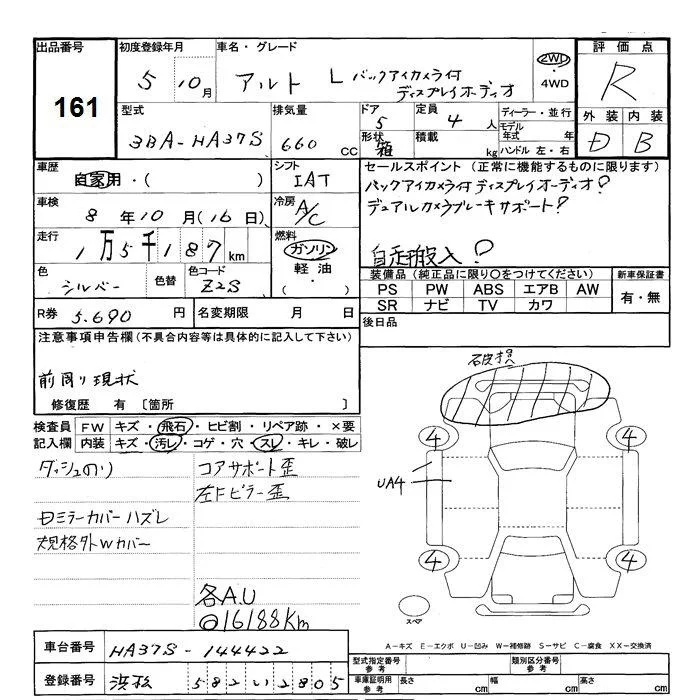 出品番号
161
初度登録年月
5 10月
車名・グレード
アルト L バックアイカメラ付
ディスプレイオーディオ
2WD
・
4WD
評価点
R
外装 内装
D B
型式
3BA-HA37S
排気量
660 cc
ドア
5
形状
箱
定員
4 人
積載
kg
ディーラー・並行
モデル年式 年
ハンドル 左・右
車歴
自家用・( )
シフト
IAT
車検
8年10月(16日)
冷房
A/C
走行
1万5千187km
燃料
ガソリン
軽油・
( )
色
シルバー
色替
色コード
Z2S
R券
5.690 円
名変期限 月 日
セールスポイント(正常に機能するものに限ります)
バックアイカメラ付ディスプレイオーディオ?
デュアルカメラブレーキサポート?
自走搬入?
装備品(純正品に限り○をつけてください)
PS PW ABS エアB AW
SR ナビ TV カワ
新車保証書
有・無
後日品
注意事項申告欄(不具合内容等は具体的に記入して下さい)
前周り現状
修復歴 有〔箇所 〕
検査員記入欄
FW キズ・飛石・ヒビ割・リペア跡・×要
内装 キズ・汚レ・コゲ・穴・スレ・キレ・破レ
ダッシュのり
コアサポート歪
左Fピラー歪
右ミラーカバーハズレ
大規格外Wカバー
各A.U
@16188Km
破損
4
4
UA4
4
4
スペア
A-キズ E-エクボ U-凹み W-補修跡 S-サビ C-腐食 XX-交換済
車台番号
HA37S-144422
登録番号
浜松 582 い 2805
型式指定番号
参考
類別区分番号
参考
車庫証明用
参考
長さ cm
幅 cm
高さ cm